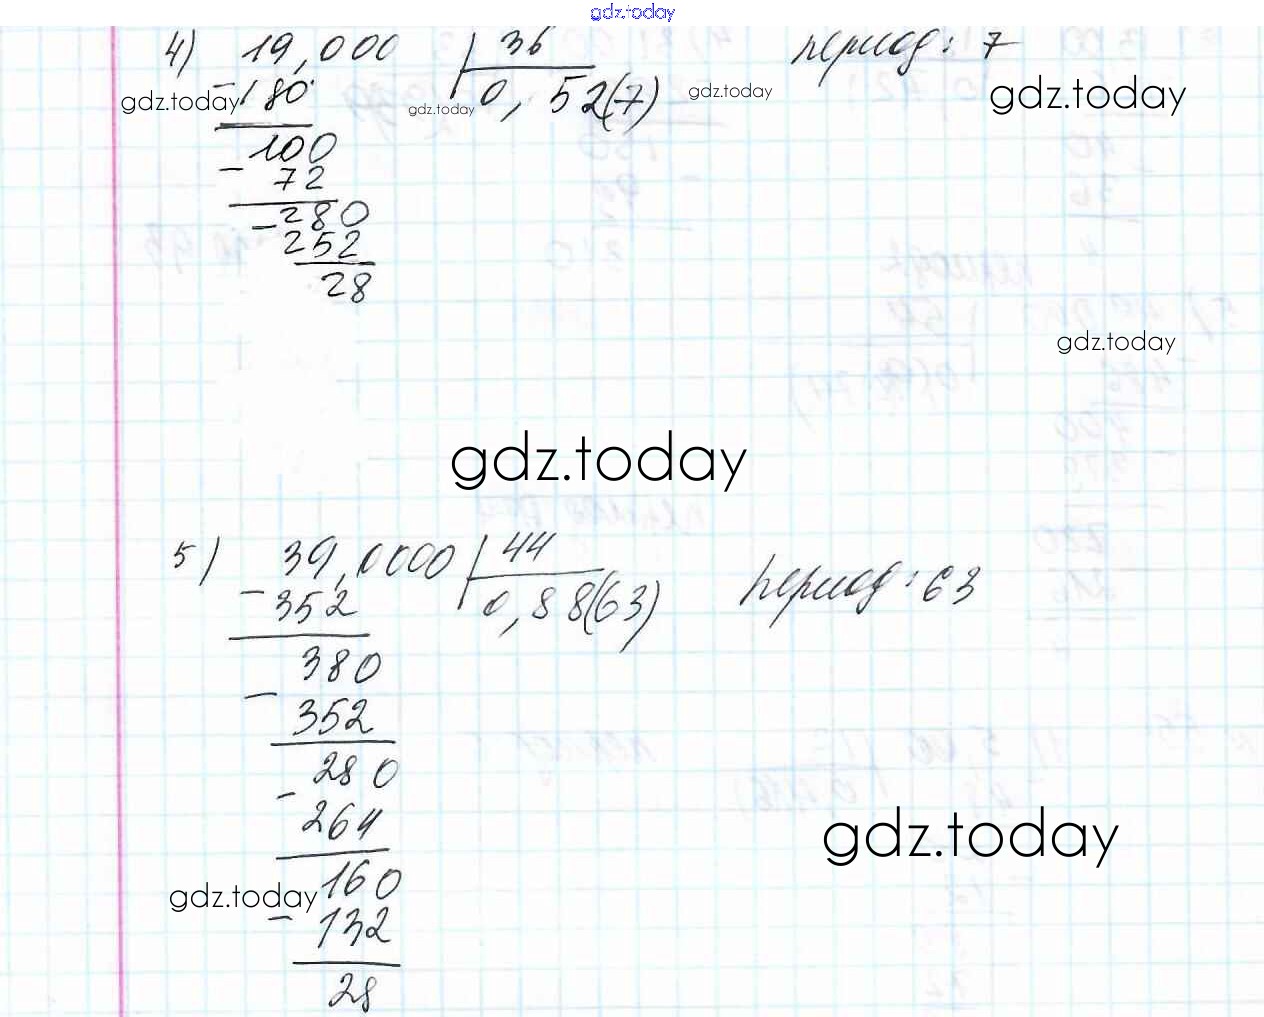 gdz.today
4) 19,000 36 период: 7
180 0,52(7)
gdz.today gdz.today gdz.today gdz.today
100
72
280
252
28
gdz.today
gdz.today
5) 39,0000 44
352 0,88(63) период: 63
380
352
280
264
gdz.today
160
gdz.today
132
28